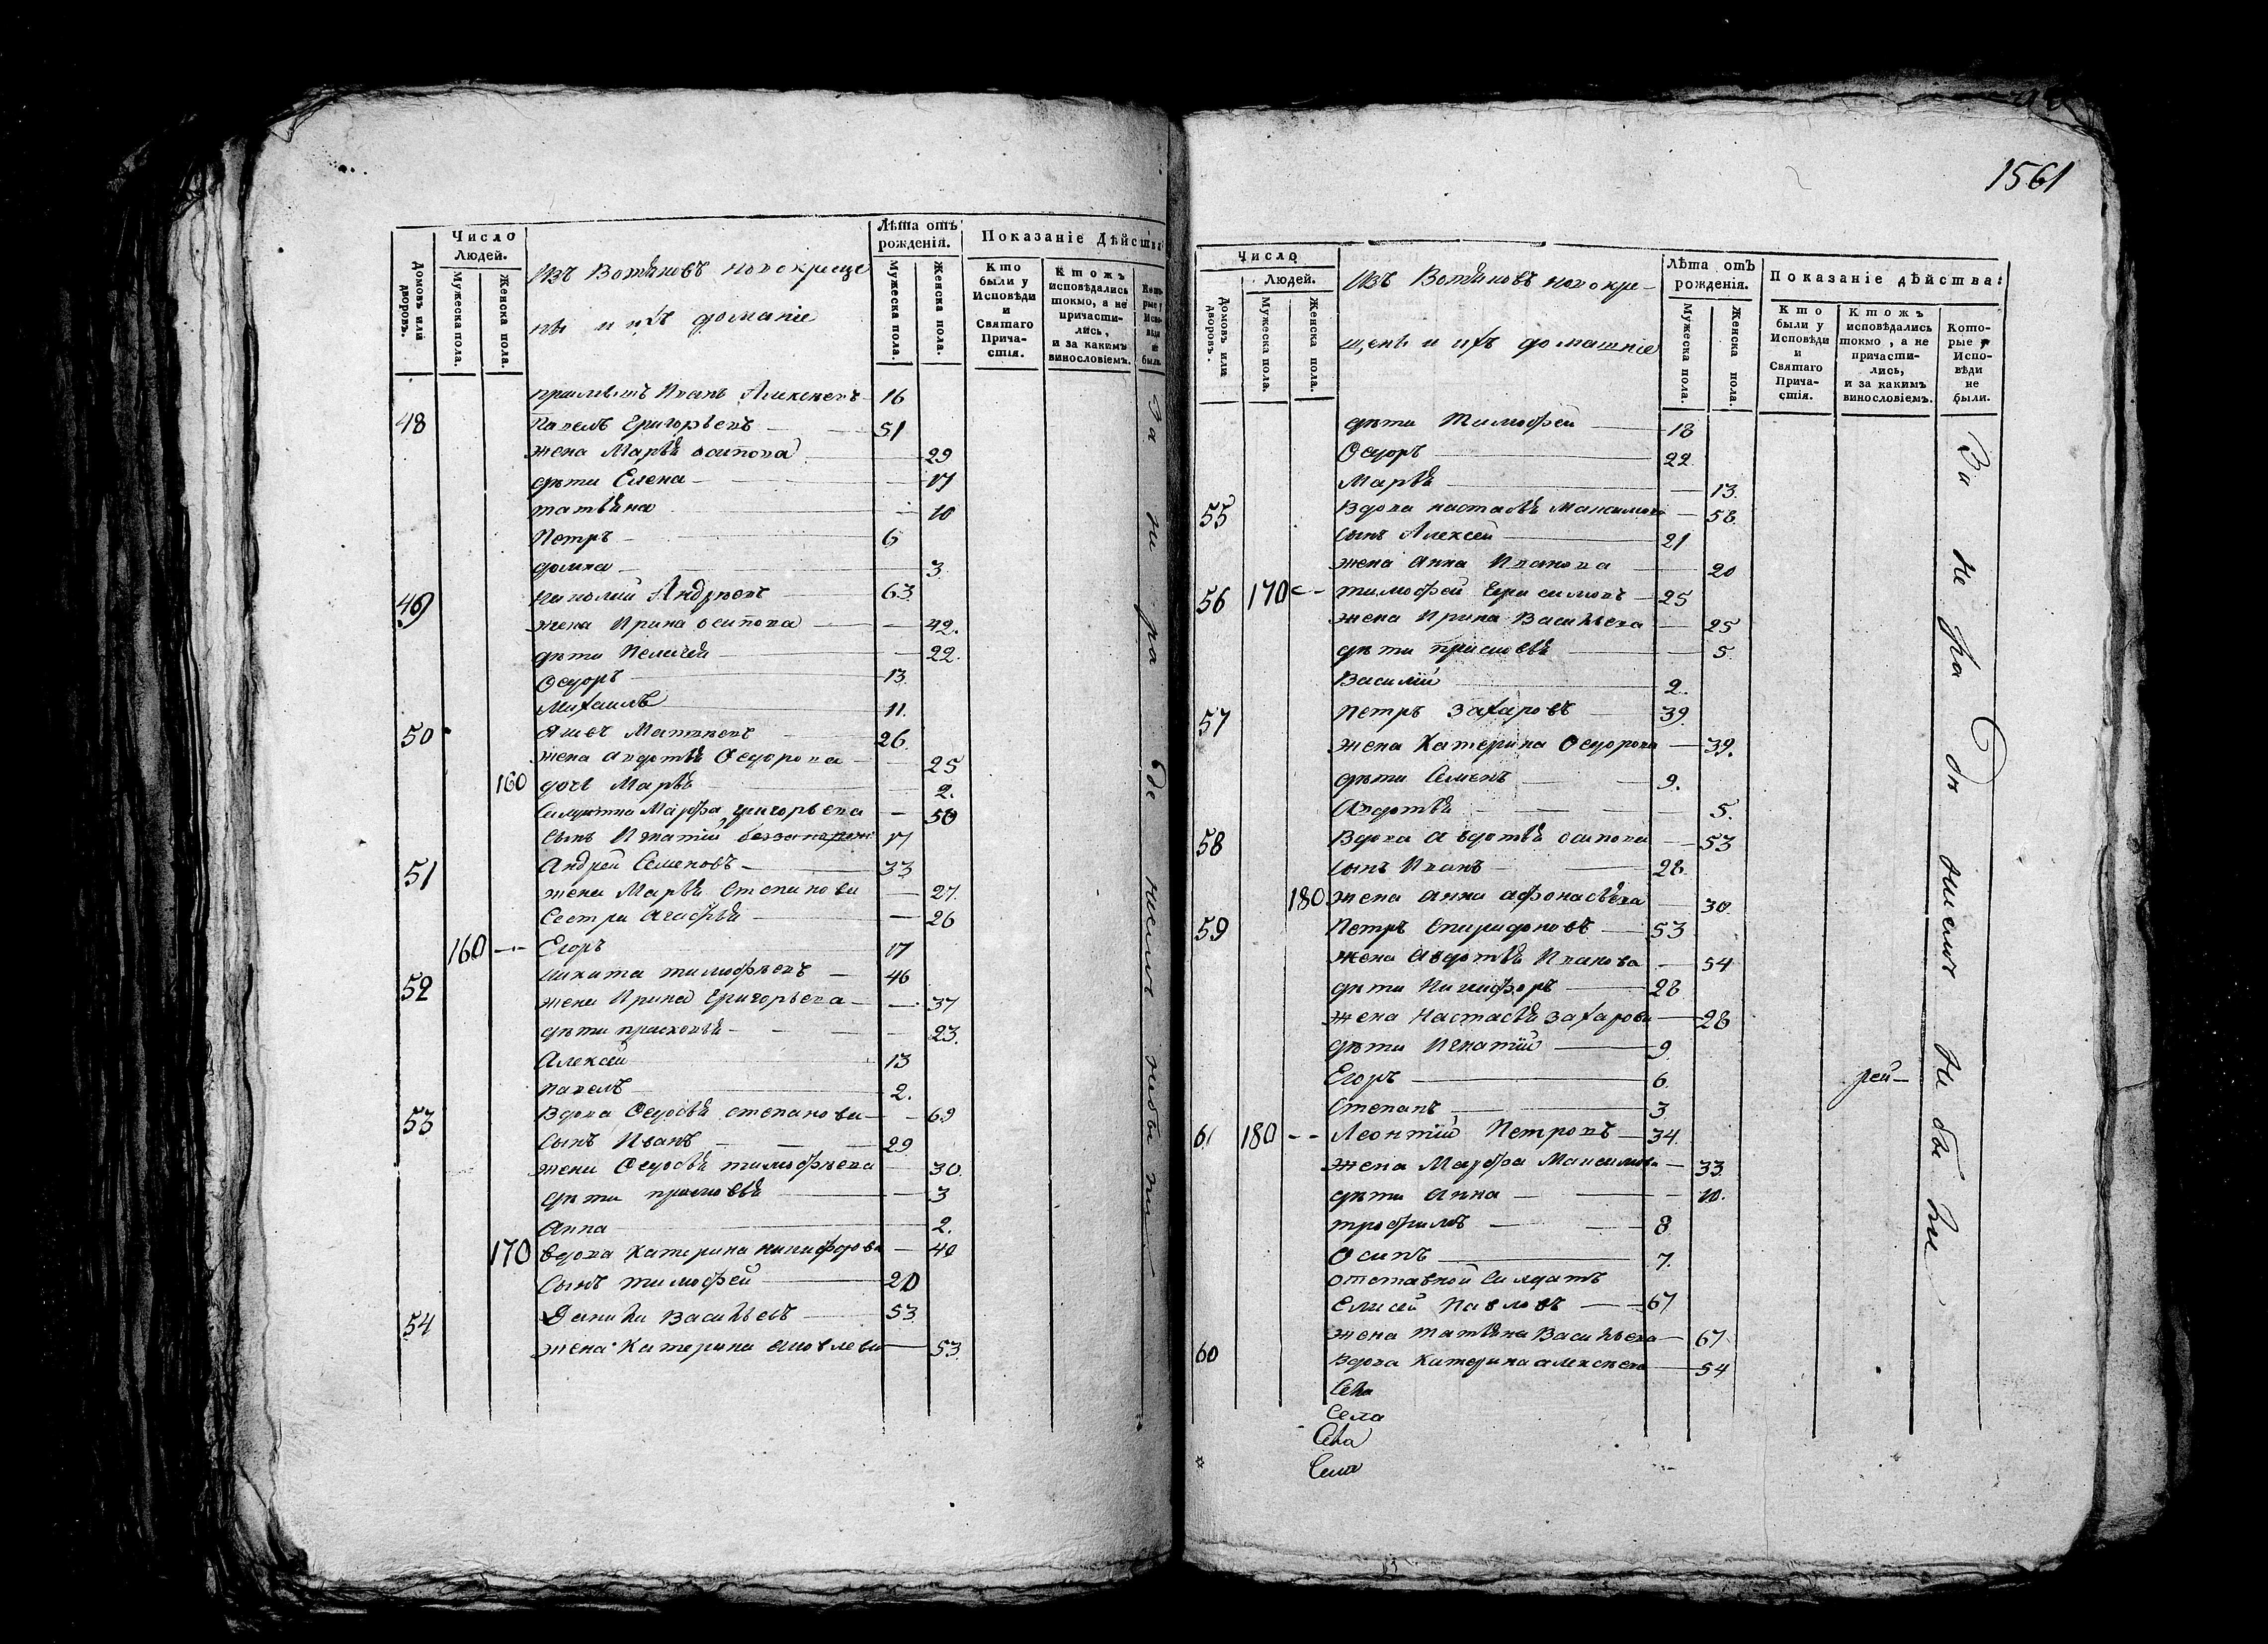 Число Людей.
Домовъ или дворовъ.
Мужеска пола.
Женска пола.
Изъ Вотяковъ новокреще
ны и ихъ домашніе
Лѣта отъ рожденія.
Мужеска пола.
Женска пола.
Показаніе Дѣйства
Кто были у Исповѣди и Святаго Прича-стія.
Ктожъ исповѣдались токмо, а не причасти-лись, и за какимъ винословіемъ.
Иванъ Алексеевъ 16
48 Павелъ Григорьевъ 51
жена Марья осипова 29
дѣти Елена 17
татьяна 10
Петръ 6
домна 3
49 Андреевъ 63
жена Ирина осипова 42.
дѣти Пелагея 22.
Ѳедоръ 13
Михаилъ 11.
50 26
жена авдотья Ѳедорова 25
160 дочь Марья 2.
Марфа григорьева 50
сынъ Игнатій 17
51 Андрей Семеновъ 33
жена Марья Степанова 27.
Сестра агафья 26
160 Егоръ 17
52 никита тимофѣевъ 46
жена Ирина Григорьева 37
дѣти прасковья 23.
Алексей 13
павелъ 2.
53 Вдова Ѳедосья степанова 69
Сынъ Иванъ 29
жена Ѳедосья тимофѣева 30.
дѣти 3
Анна 2.
170 вдова Катерина никифорова 40
Сынъ тимофей 20
54 Данила Васильевъ 53
жена Катерина яковлева 53.
1561
Число
Людей.
Домовъ или дворовъ.
Мужеска пола.
Женска пола.
Изъ Вотяковъ новокре-
щены и ихъ домашніе
Лѣта отъ рожденія.
Мужеска пола.
Женска пола.
Показаніе дѣйства:
Кто были у Исповѣди и Святаго Прича-стія.
Ктожъ исповѣдались токмо, а не причасти-лись, и за какимъ винословіемъ.
Кото-рые у Испо-вѣди не были.
дѣти Тимофей 18
Ѳедоръ 22
Марья 13.
55 Вдова настасья Максимова 58
сынъ Алексей 21
жена анна Иванова 20
56 170 тимофей Герасимовъ 25
жена Ирина Васильева 25
дѣти 5
Василій 2.
57 Петръ Захаровъ 39
жена Катерина Ѳедорова 39.
дѣти Семенъ 9.
Авдотья 5.
58 Вдова авдотья осипова 53
сынъ Иванъ 28
180 жена анна афонасьева 30
59 Петръ Спиридоновъ 53
жена авдотья Иванова 54
дѣти Никифоръ 28
жена Настасья Захарова 28
дѣти Игнатій 9
Егоръ 6.
Степанъ 3
61 180 Леонтій Петровъ 34.
жена Марфа Максимова 33
дѣти анна 10.
трофимъ 8
Осипъ 7.
отставной Салдатъ
Елисей Павловъ 67
жена татьяна Васильева 67
60 Вдова Катерина алексеева 54
Села
Села
Села
Села